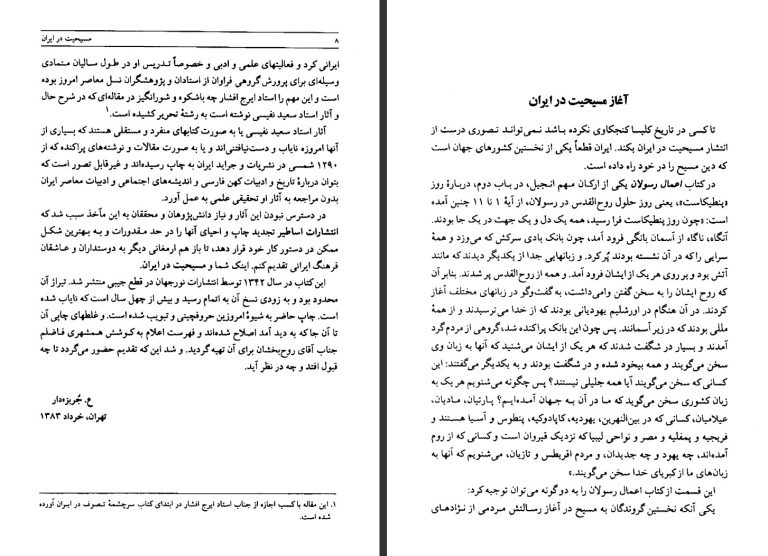 ۸ مسیحیت در ایران
ایرانی کرد و فعالیتهای علمی و ادبی و خصوصاً تدریس او در طول سالیان متمادی
وسیله‌ای برای پرورش گروهی فراوان از استادان و پژوهشگران نسل معاصر امروز بوده
است و این مهم را استاد ایرج افشار چه باشکوه و شورانگیز در مقاله‌ای که در شرح حال
و آثار استاد سعید نفیسی نوشته است به رشتهٔ تحریر کشیده است.۱
آثار استاد سعید نفیسی یا به صورت کتابهای منفرد و مستقلی هستند که بسیاری از
آنها امروزه نایاب و دست‌نیافتنی‌اند و یا به صورت مقالات و نوشته‌های پراکنده که از
۱۲۹۰ شمسی در نشریات و جراید ایران به چاپ رسیده‌اند و غیرقابل تصور است که
بتوان دربارهٔ تاریخ و ادبیات کهن فارسی و اندیشه‌های اجتماعی و ادبیات معاصر ایران
بدون مراجعه به آثار او تحقیقی علمی به عمل آورد.
در دسترس نبودن این آثار و نیاز دانش‌پژوهان و محققان به این مآخذ سبب شد که
انتشارات اساطیر تجدید چاپ و احیای آنها را در حد مقدورات و به بهترین شکل
ممکن در دستور کار خود قرار دهد، تا باز هم ارمغانی دیگر به دوستداران و عاشقان
فرهنگ ایرانی تقدیم کنم. اینک شما و مسیحیت در ایران.
این کتاب در سال ۱۳۴۲ توسط انتشارات نورجهان در قطع جیبی منتشر شد. تیراژ آن
محدود بود و به زودی نسخ آن به اتمام رسید و بیش از چهل سال است که نایاب شده
است. چاپ حاضر به شیوهٔ امروزین حروفچینی و تبویب شده است. و غلطهای چاپی آن
تا آن جا که به دید آمد اصلاح شده‌اند و فهرست اعلام به کوشش همشهری فاضلم
جناب آقای روح‌بخشان برای آن تهیه گردید. و شد این که تقدیم حضور می‌گردد تا چه
قبول افتد و چه در نظر آید.
ع. جُربزه‌دار
تهران، خرداد ۱۳۸۳
۱. این مقاله با کسب اجازه از جناب استاد ایرج افشار در ابتدای کتاب سرچشمهٔ تصوف در ایران آورده
شده است.
آغاز مسیحیت در ایران
تا کسی در تاریخ کلیسا کنجکاوی نکرده باشد نمی‌تواند تصوری درست از
انتشار مسیحیت در ایران بکند. ایران قطعاً یکی از نخستین کشورهای جهان است
که دین مسیح را در خود راه داده است.
در کتاب اعمال رسولان یکی از ارکان مهم انجیل، در باب دوم، دربارهٔ روز
«پنطیکاست»، یعنی روز حلول روح‌القدس در رسولان، از آیهٔ ۱ تا ۱۱ چنین آمده
است: «چون روز پنطیکاست فرا رسید، همه یک دل و یک جهت در یک جا بودند.
آنگاه، ناگاه از آسمان بانگی فرود آمد، چون بانک بادی سرکش که می‌وزد و همهٔ
سرایی را که در آن نشسته بودند پُر کرد. و زبانهایی جدا از یکدیگر دیدند که مانند
آتش بود و بر روی هر یک از ایشان فرود آمد. و همه از روح‌القدس پر شدند. بنابر آن
که روح ایشان را به سخن گفتن وامی‌داشت، به گفت‌وگو در زبانهای مختلف آغاز
کردند. در آن هنگام در اورشلیم یهودیانی بودند که از خدا می‌ترسیدند و از همهٔ
مللی بودند که در زیر آسمانند. پس چون این بانک پراکنده شد، گروهی از مردم گرد
آمدند و بسیار در شگفت شدند که هر یک از ایشان می‌شنید که آنها به زبان وی
سخن می‌گویند و همه بیخود شده و در شگفت بودند و به یکدیگر می‌گفتند: این
کسانی که سخن می‌گویند آیا همه جلیلی نیستند؟ پس چگونه می‌شنویم هر یک به
زبان کشوری سخن می‌گوید که ما در آن به جهان آمده‌ایم؟ پارتیان، مادیان،
عیلامیان، کسانی که در بین‌النهرین، یهودیه، کاپادوکیه، پنطوس و آسیا هستند و
فریجیه و پمفلیه و مصر و نواحی لیبیا که نزدیک قیروان است و کسانی که از روم
آمده‌اند، چه یهود و چه جدیدان، و مردم اقریطس و تازیان، می‌شنویم که آنها به
زبان‌های ما از کبریای خدا سخن می‌گویند.»
این قسمت از کتاب اعمال رسولان را به دو گونه می‌توان توجیه کرد:
یکی آنکه نخستین گروندگان به مسیح در آغاز رسالتش مردمی از نژادهای